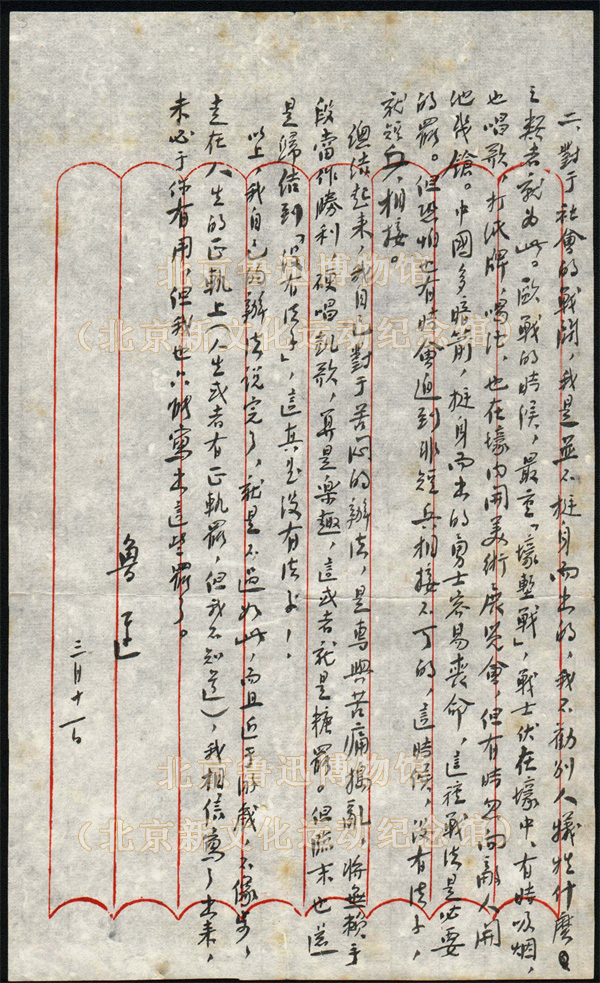 二、對于社會的戰鬥，我是並不挺身而出的，我不勸別人犧牲什麼
之類者就為此。歐戰的時候，最重「壕塹戰」，戰士伏在壕中，有時吸烟，
也唱歌，打紙牌，喝酒，也在壕內開美術展覽會，但有時忽向敵人開
他幾鎗。中國多暗箭，挺身而出的勇士容易喪命，這種戰法是必要
的罷。但恐怕也有時會迫到非短兵相接不可的，這時候，沒有法子，
就短兵相接。
總結起來，我自己對于苦悶的辦法，是專與苦痛搗亂，將無賴手
段當作勝利，硬唱凱歌，算是樂趣，這或者就是糖罷。但臨末也還
是歸結到「沒有法子」，這真是沒有法子！
以上，我自己的辦法說完了，就是不過如此，而且近于游戲，不像步步
走在人生的正軌上（人生或者有正軌罷，但我不知道），我相信寫了出來，
未必于你有用，但我也只能寫出這些罷了。
魯迅
三月十一日
北京鲁迅博物馆
（北京新文化运动纪念馆）
北京鲁迅博物馆
（北京新文化运动纪念馆）